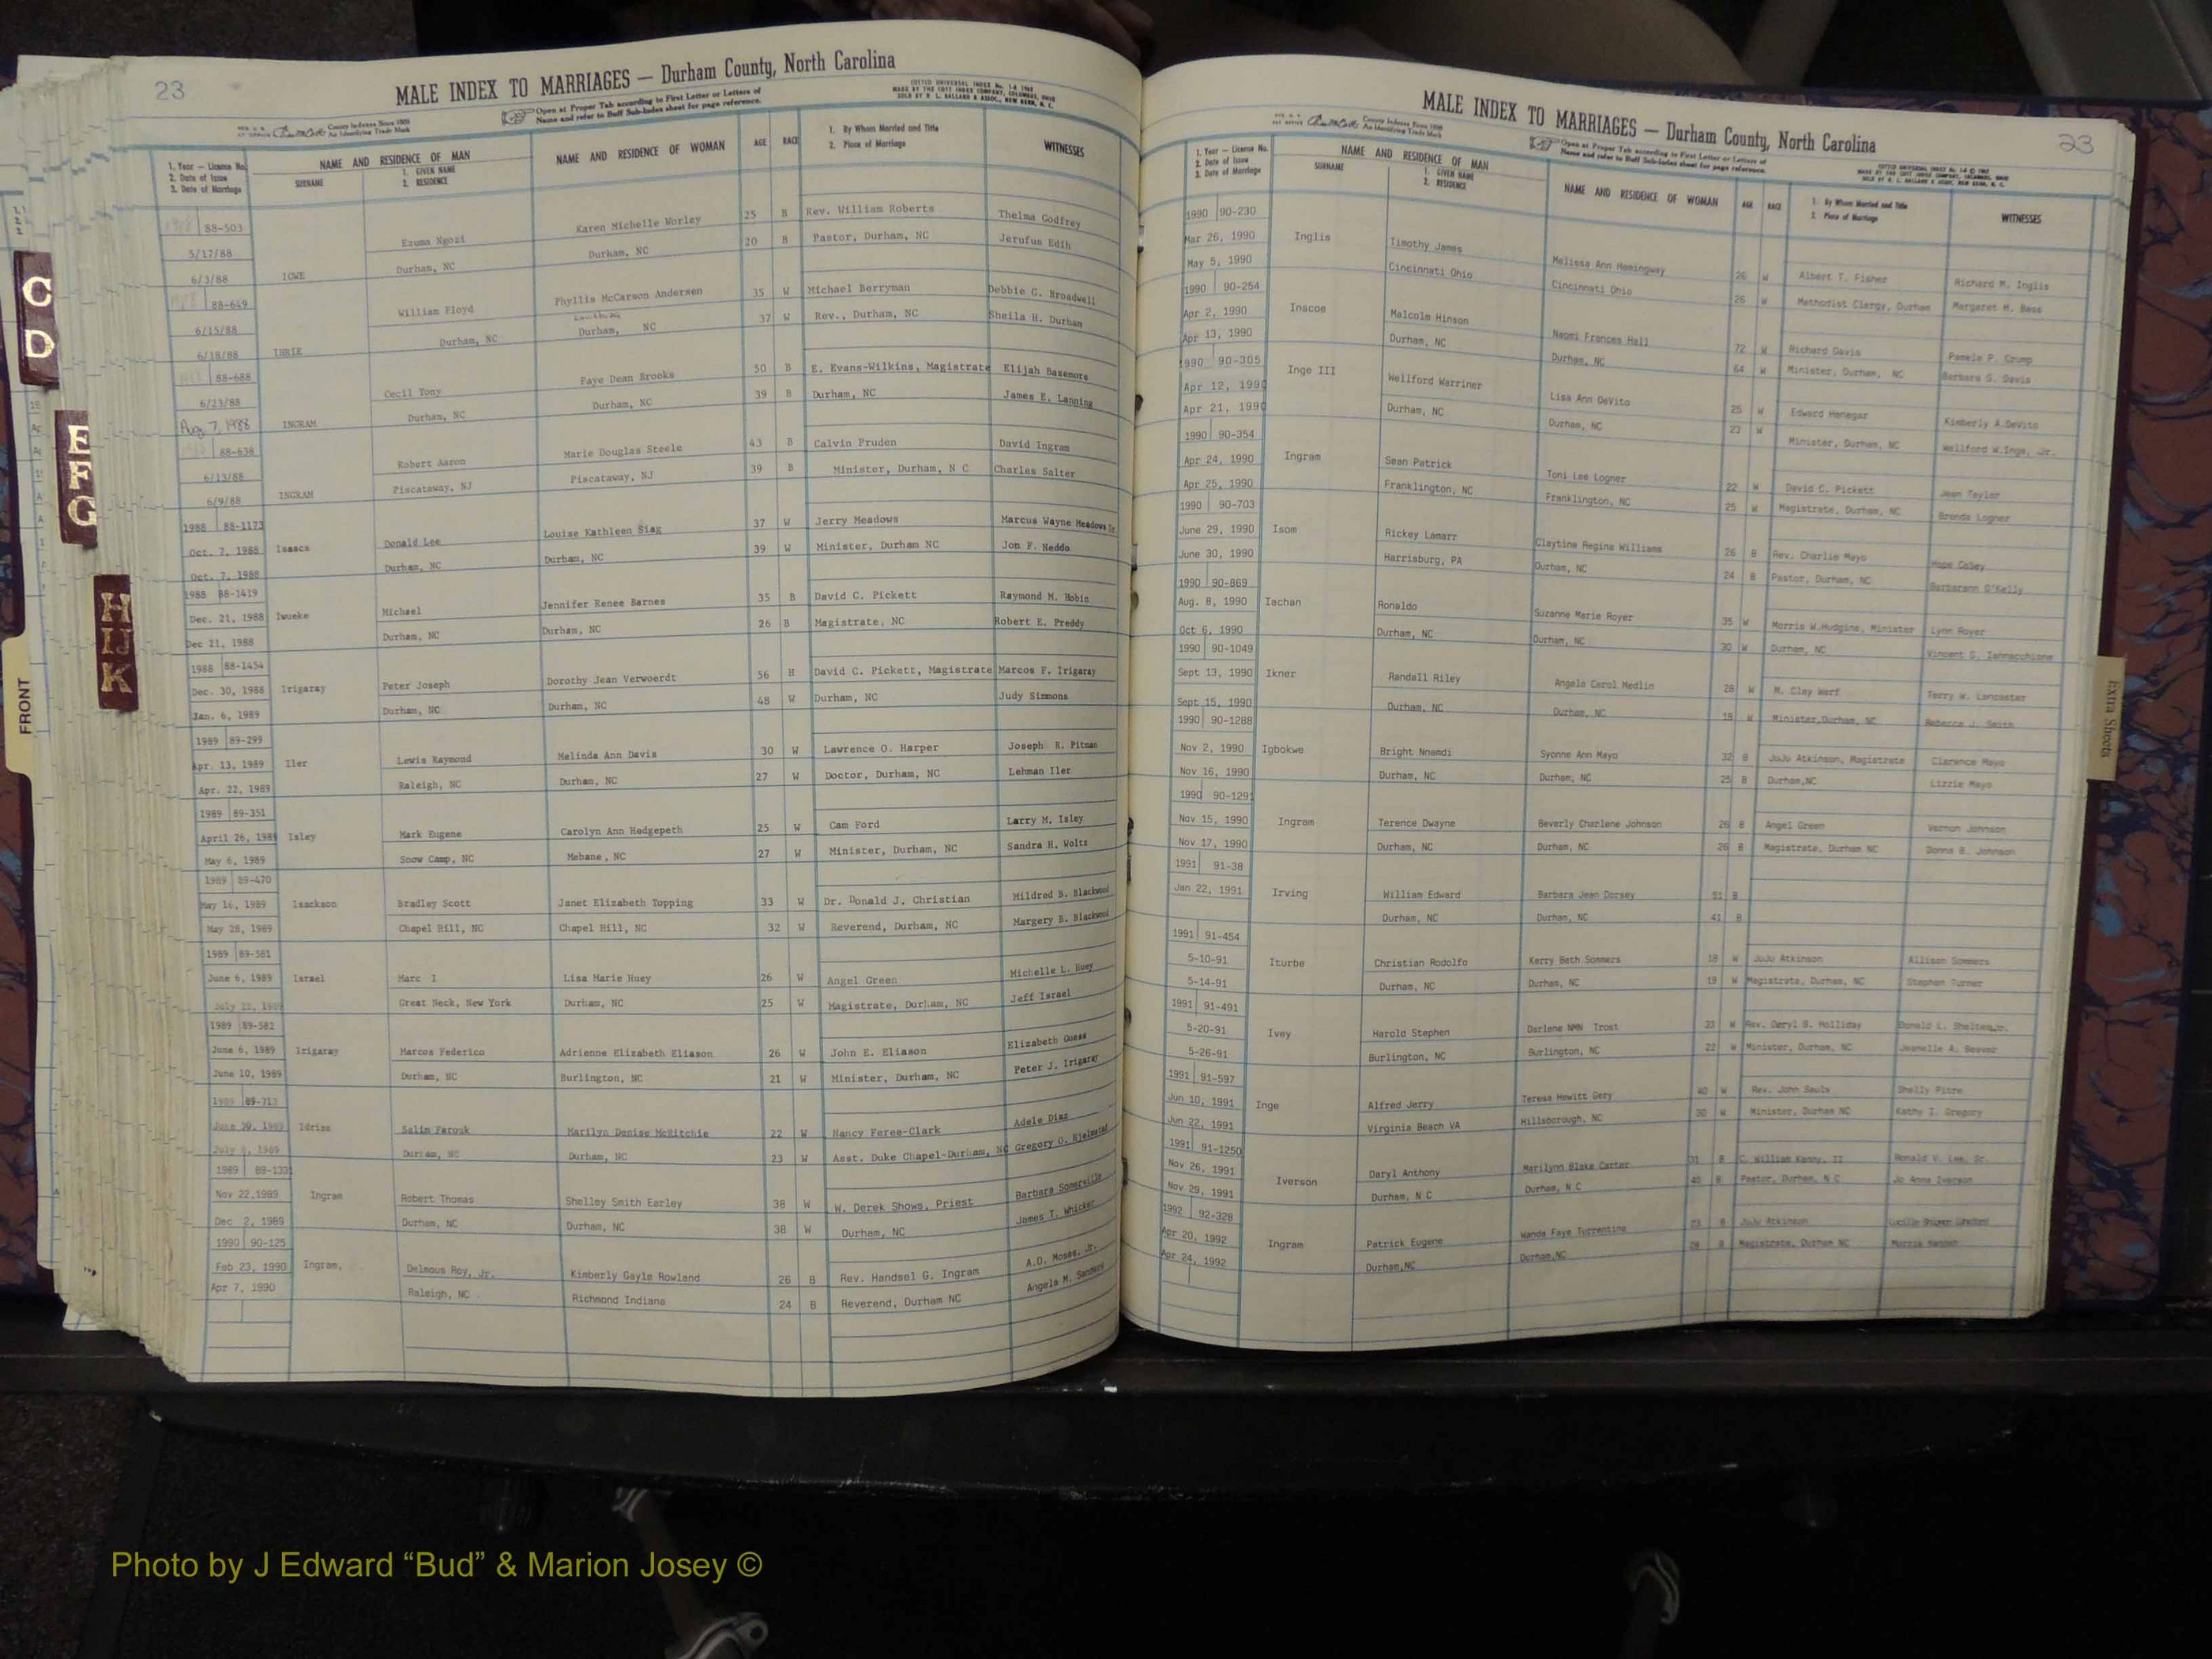 23
MALE INDEX TO MARRIAGES — Durham County, North Carolina
Open at Proper Tab according to First Letter or Letters of
Name and refer to Buff Sub-Index sheet for page reference.
COTTCO UNIVERSAL INDEX
County Indexes Since 1888
An Identifying Trade Mark
1. Year — License No. NAME AND RESIDENCE OF MAN NAME AND RESIDENCE OF WOMAN AGE RACE 1. By Whom Married and Title WITNESSES
2. Date of Issue SURNAME 1. GIVEN NAME 2. Place of Marriage
3. Date of Marriage 2. RESIDENCE
88-503 Karen Michelle Worley 25 B Rev. William Roberts Thelma Godfrey
5/17/88 Ezuma Ngozi Durham, NC 20 B Pastor, Durham, NC Jerufus Edih
6/3/88 IGWE Durham, NC
88-649 William Floyd Phyllis McCarson Andersen 35 W Michael Berryman Debbie G. Broadwell
6/15/88 Durham, NC Durham, NC 37 W Rev., Durham, NC Sheila H. Durham
6/18/88 IHRIE
88-688 Cecil Tony Faye Dean Brooks 50 B E. Evans-Wilkins, Magistrate Elijah Bazemore
6/23/88 Durham, NC Durham, NC 39 B Durham, NC James E. Lanning
Aug 7, 1988 INGRAM
88-638 Robert Aaron Marie Douglas Steele 43 B Calvin Pruden David Ingram
6/13/88 Piscataway, NJ Piscataway, NJ 39 B Minister, Durham, N C Charles Salter
6/9/88 INGRAM
1988 88-1173 Donald Lee Louise Kathleen Siag 37 W Jerry Meadows Marcus Wayne Meadows Sr.
Oct. 7, 1988 Isaacs Durham, NC Durham, NC 39 W Minister, Durham NC Jon F. Neddo
Oct. 7, 1988
1988 88-1419 Michael Jennifer Renee Barnes 35 B David C. Pickett Raymond M. Hobin
Dec. 21, 1988 Iwueke Durham, NC Durham, NC 26 B Magistrate, NC Robert E. Preddy
Dec 21, 1988
1988 88-1454 Peter Joseph Dorothy Jean Verwoerdt 56 H David C. Pickett, Magistrate Marcos F. Irigaray
Dec. 30, 1988 Irigaray Durham, NC Durham, NC 48 W Durham, NC Judy Simmons
Jan. 6, 1989
1989 89-299 Lewis Raymond Melinda Ann Davis 30 W Lawrence O. Harper Joseph R. Pitman
Apr. 13, 1989 Iler Raleigh, NC Durham, NC 27 W Doctor, Durham, NC Lehman Iler
Apr. 22, 1989
1989 89-351 Mark Eugene Carolyn Ann Hedgepeth 25 W Cam Ford Larry M. Isley
April 26, 1989 Isley Snow Camp, NC Mebane, NC 27 W Minister, Durham, NC Sandra H. Woltz
May 6, 1989
1989 89-470
May 16, 1989 Isackson Bradley Scott Janet Elizabeth Topping 33 W Dr. Donald J. Christian Mildred B. Blackwood
May 28, 1989 Chapel Hill, NC Chapel Hill, NC 32 W Reverend, Durham, NC Margery B. Blackwood
1989 89-581
June 6, 1989 Israel Marc I Lisa Marie Huey 26 W Angel Green Michelle L. Huey
July 22, 1989 Great Neck, New York Durham, NC 25 W Magistrate, Durham, NC Jeff Israel
1989 89-582
June 6, 1989 Irigaray Marcos Federico Adrienne Elizabeth Eliason 26 W John E. Eliason Elizabeth Guess
June 10, 1989 Durham, NC Burlington, NC 21 W Minister, Durham, NC Peter J. Irigaray
1989 89-713
June 20, 1989 Idriss Salim Farouk Marilyn Denise McRitchie 22 W Nancy Feree-Clark Adele Diaz
July 8, 1989 Durham, NC Durham, NC 23 W Asst. Duke Chapel-Durham, NC Gregory O. Hjelmstad
1989 89-1331
Nov 22,1989 Ingram Robert Thomas Shelley Smith Earley 38 W W. Derek Shows, Priest Barbara Somerville
Dec 2, 1989 Durham, NC Durham, NC 38 W Durham, NC James T. Whicker
1990 90-125
Feb 23, 1990 Ingram, Delmous Roy, Jr. Kimberly Gayle Rowland 26 B Rev. Handsel G. Ingram A.O. Moses, Jr.
Apr 7, 1990 Raleigh, NC Richmond Indiana 24 B Reverend, Durham NC Angela M. Sanders
MALE INDEX TO MARRIAGES — Durham County, North Carolina
23
Open at Proper Tab according to First Letter or Letters of
Name and refer to Buff Sub-Index sheet for page reference.
County Indexes Since 1888
An Identifying Trade Mark
1. Year — License No. NAME AND RESIDENCE OF MAN NAME AND RESIDENCE OF WOMAN AGE RACE 1. By Whom Married and Title WITNESSES
2. Date of Issue SURNAME 1. GIVEN NAME 2. Place of Marriage
3. Date of Marriage 2. RESIDENCE
1990 90-230
Mar 26, 1990 Inglis Timothy James Melissa Ann Hemingway 26 W Albert T. Fisher Richard M. Inglis
May 5, 1990 Cincinnati Ohio Cincinnati Ohio 26 W Methodist Clergy, Durham Margaret H. Bass
1990 90-254
Apr 2, 1990 Inscoe Malcolm Hinson Naomi Frances Hall 72 W Richard Davis Pamela P. Crump
Apr 13, 1990 Durham, NC Durham, NC 64 W Minister, Durham, NC Barbara S. Davis
1990 90-305
Apr 12, 1990 Inge III Wellford Warriner Lisa Ann DeVito 25 W Edward Henegar Kimberly A.DeVito
Apr 21, 1990 Durham, NC Durham, NC 23 W Minister, Durham, NC Wellford W.Inge, Jr.
1990 90-354
Apr 24, 1990 Ingram Sean Patrick Toni Lee Logner 22 W David C. Pickett Jean Taylor
Apr 25, 1990 Franklington, NC Franklington, NC 25 W Magistrate, Durham, NC Brenda Logner
1990 90-703
June 29, 1990 Isom Rickey Lamarr Claytina Regina Williams 26 B Rev. Charlie Mayo Hope Cabey
June 30, 1990 Harrisburg, PA Durham, NC 24 B Pastor, Durham, NC Barbarann O'Kelly
1990 90-869
Aug. 8, 1990 Iachan Ronaldo Suzanne Marie Royer 35 W Morris W.Hudgins, Minister Lynn Royer
Oct 6, 1990 Durham, NC Durham, NC 30 W Durham, NC Vincent G. Iannacchione
1990 90-1049
Sept 13, 1990 Ikner Randall Riley Angela Carol Medlin 28 W M. Clay Warf Terry W. Lancaster
Sept 15, 1990 Durham, NC Durham, NC 18 W Minister,Durham, NC Rebecca J. Smith
1990 90-1288
Nov 2, 1990 Igbokwe Bright Nnamdi Syonne Ann Mayo 32 B JuJu Atkinson, Magistrate Clarence Mayo
Nov 16, 1990 Durham, NC Durham, NC 25 B Durham,NC Lizzie Mayo
1990 90-1291
Nov 15, 1990 Ingram Terence Dwayne Beverly Charlene Johnson 26 B Angel Green Vernon Johnson
Nov 17, 1990 Durham, NC Durham, NC 26 B Magistrate, Durham NC Donna B. Johnson
1991 91-38
Jan 22, 1991 Irving William Edward Barbara Jean Dorsey 51 B
Durham, NC Durham, NC 41 B
1991 91-454
5-10-91 Iturbe Christian Rodolfo Kerry Beth Sommers 18 W JuJu Atkinson Allison Sommers
5-14-91 Durham, NC Durham, NC 19 W Magistrate, Durham, NC Stephen Turner
1991 91-491
5-20-91 Ivey Harold Stephen Darlene NMN Trost 23 W Rev. Daryl B. Holliday Donald L. Shelton,Jr.
5-26-91 Burlington, NC Burlington, NC 22 W Minister, Durham, NC Jeanelle A. Beaver
1991 91-597
Jun 10, 1991 Inge Alfred Jerry Teresa Hewitt Gety 40 W Rev. John Sauls Shelly Pitre
Jun 22, 1991 Virginia Beach VA Hillsborough, NC 30 W Minister, Durham NC Kathy I. Gregory
1991 91-1250
Nov 26, 1991 Iverson Daryl Anthony Marilynn Blake Carter 31 B C. William Kenny, II Ronald V. Lee, Sr.
Nov 29, 1991 Durham, N C Durham, N C 40 B Pastor, Durham, N C Jo Anne Iverson
1992 92-328
Apr 20, 1992 Ingram Patrick Eugene Wanda Faye Turrentine 23 B JuJu Atkinson
Apr 24, 1992 Durham,NC Durham,NC 28 B Magistrate, Durham NC
C
D
E
F
G
H
IJ
K
FRONT
Extra Sheets
Photo by J Edward “Bud” & Marion Josey ©